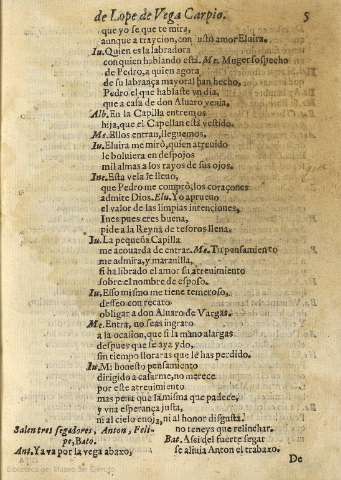 de Lope de Vega Carpio. 5
que yo se que te mira,
aunque a traycion, con usto amor Eluira.
Iu. Quien es la labradora
con quien hablando està. Me. Muger sospecho
de Pedro, a quien agora
de su labrança mayoral han hecho,
Pedro el que hablaste vn dia,
que a casa de don Aluaro venia,
Alb. En la Capilla entremos
hija, que el Capellan està vestido.
Me. Ellos entran, lleguemos,
In. Eluira me mirò, quien atreuido
le boluiera en despojos
mil almas a los rayos de sus ojos.
Ine. Esta vela le lleuo,
que Pedro me comprò, los coraçones
admite Dios. Elu. Yo aprueuo
el valor de las limpias intenciones,
Ines pues eres buena,
pide a la Reyna de tesoros llena.
Iu. La pequeña Capilla
me acouarda de entrar. Me. Tu pensamiento
me admira, y marauilla,
si ha librado el amor su atreuimiento
sobre el nombre de esposo.
Iu. Esso mismo me tiene temeroso,
desseo con recato
obligar a don Aluaro de Vargas.
Me. Entra, no seas ingrato
a la ocasion, que si la mano alargas
despues que se aya ydo,
sin tiempo lloraras que le has perdido.
Iu. Mi honesto pensamiento
dirigido a casarme, no merece
por este atreuimiento
mas pena que la misma que padece,
y vna esperança justa,
ni al cielo enoja, ni al honor disgusta.
Salen tres segadores, Anton, Feli-
pe, Bato.
Ant. Ya va por la vega abaxo,
no teneys que relinchar.
Bat. Assi del fuerte segar
se aliuia Anton el trabaxo.
De
Biblioteca del Museo del Ejército